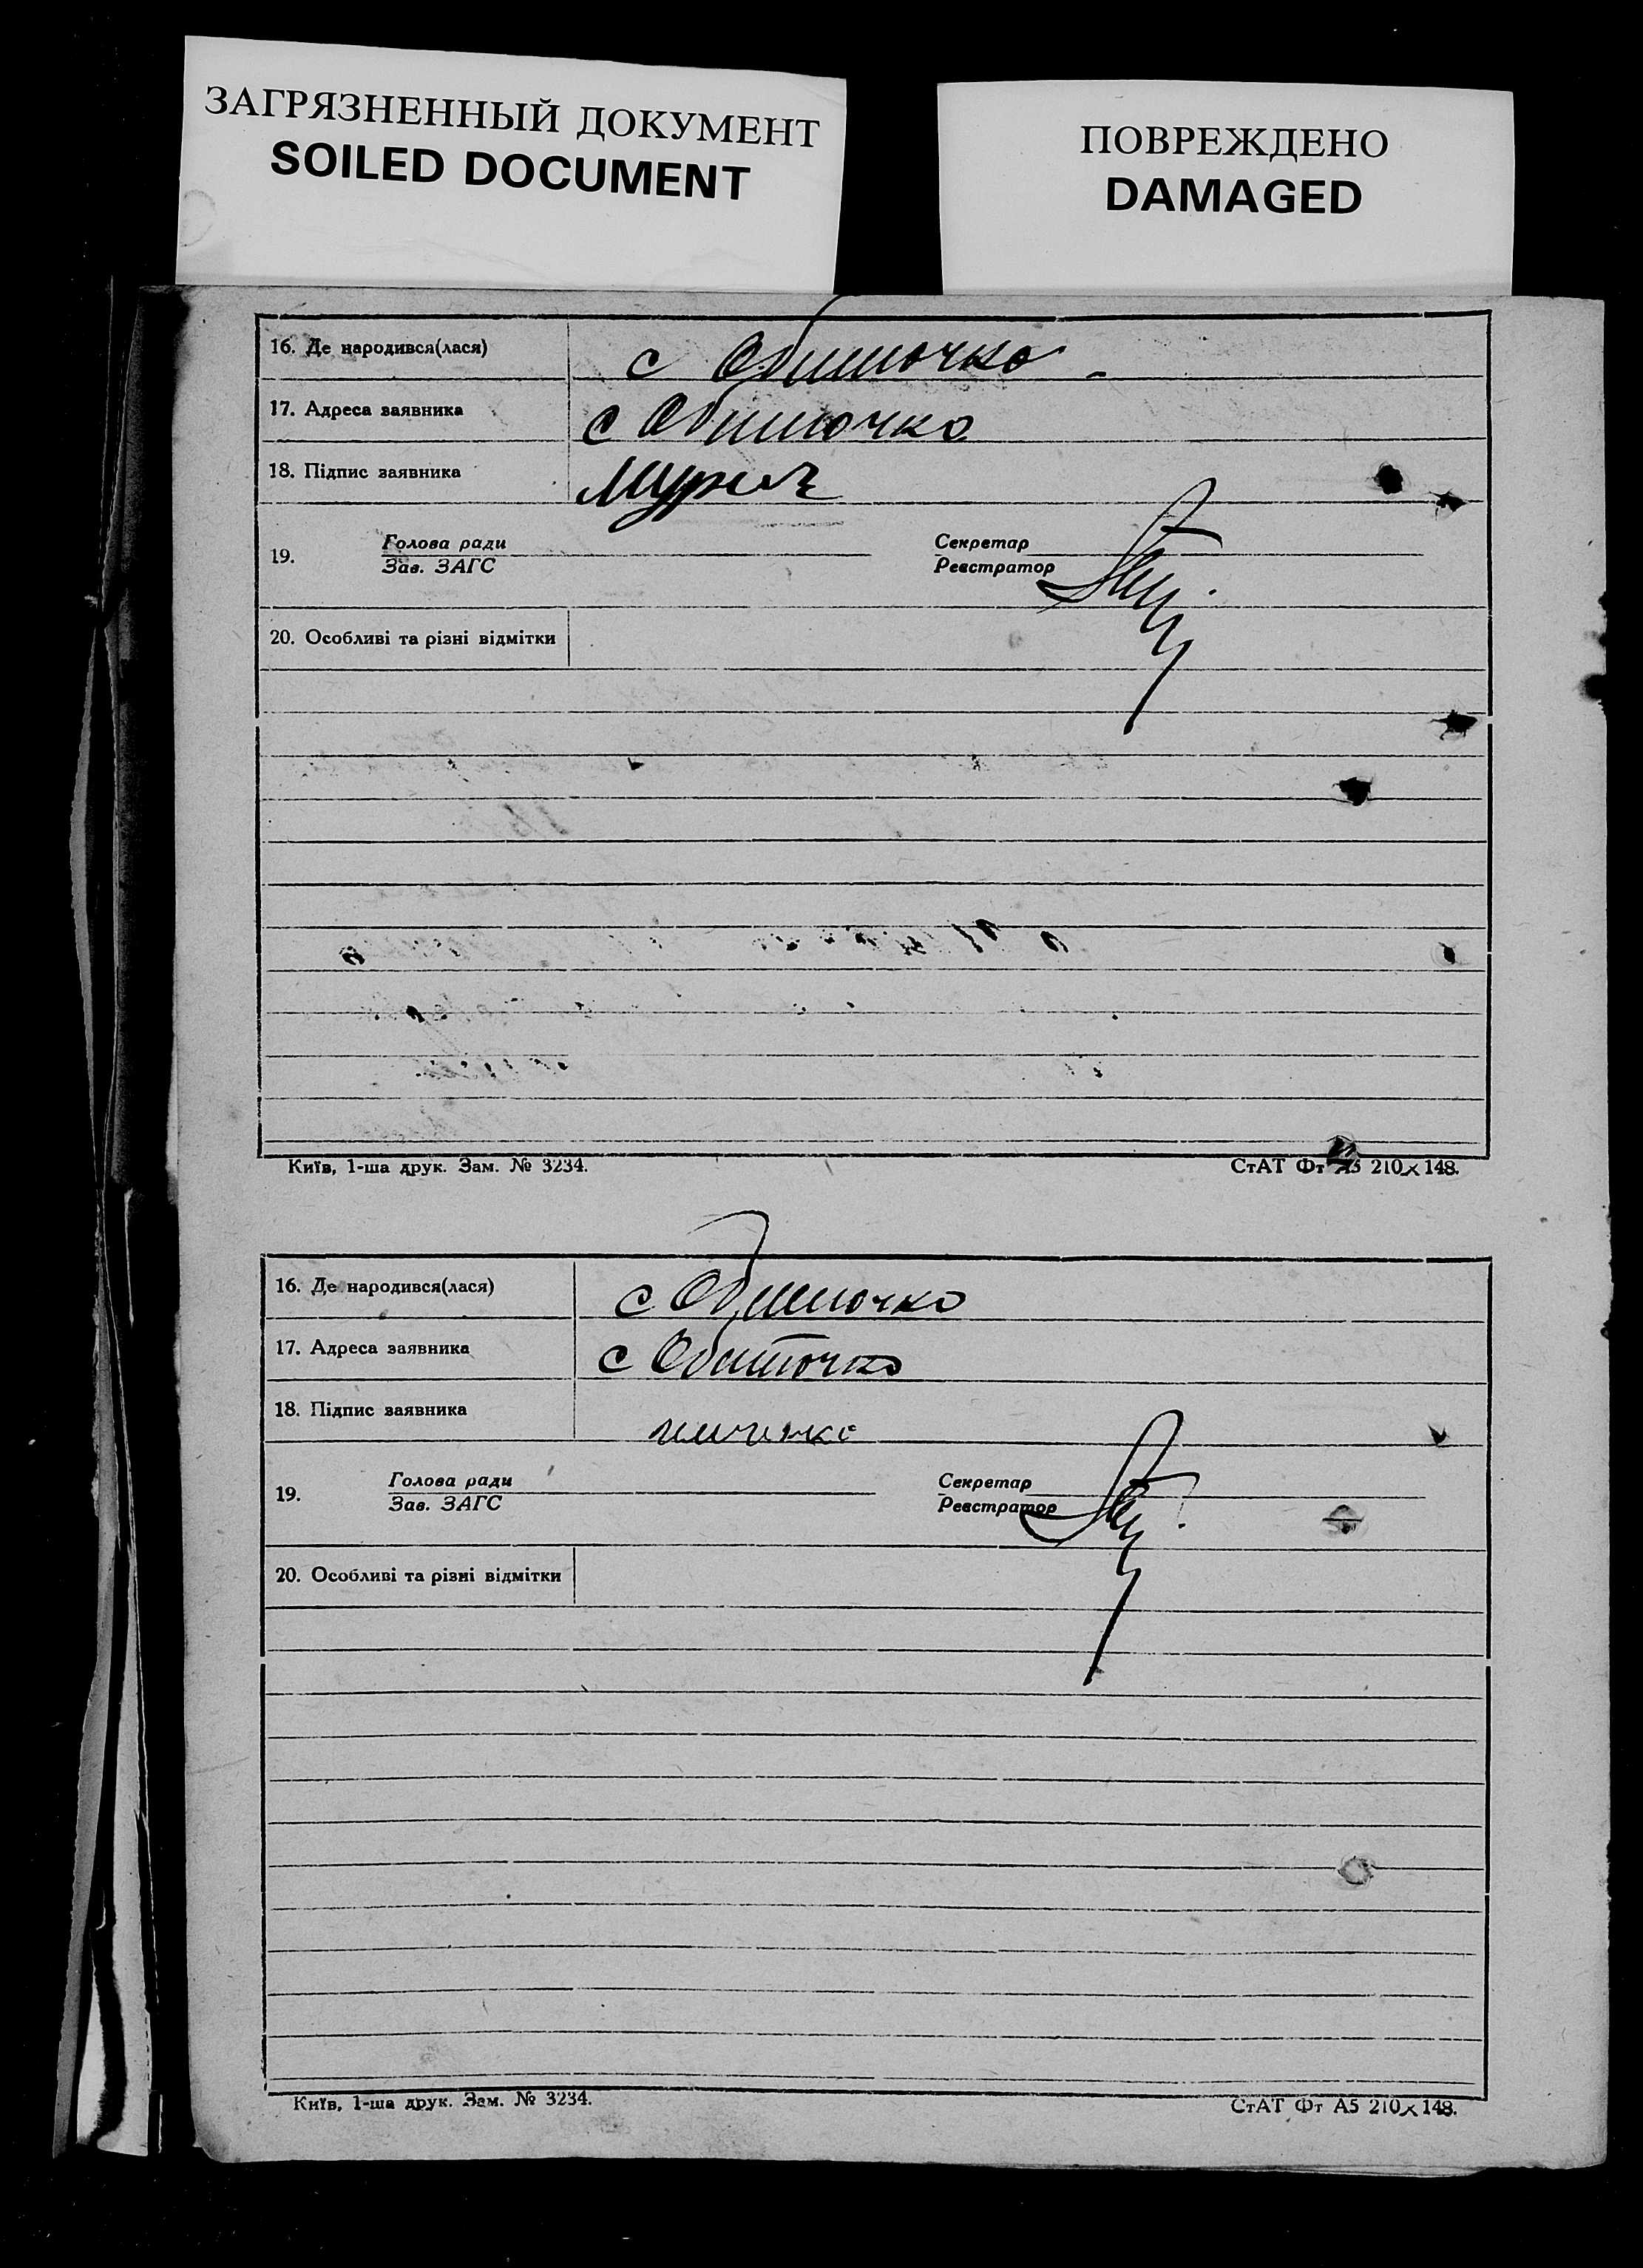 ЗАГРЯЗНЕННЫЙ ДОКУМЕНТ
SOILED DOCUMENT
ПОВРЕЖДЕНО
DAMAGED
16. Де народився(лася) с Обиточко
17. Адреса заявника с Обиточко
18. Підпис заявника
19. Голова ради
Зав. ЗАГС
Секретар
Реєстратор
20. Особливі та різні відмітки
Київ, 1-ша друк. Зам. № 3234.
СтАТ Фт А5 210×148.
16. Де народився(лася) с Обиточко
17. Адреса заявника с Обиточко
18. Підпис заявника
19. Голова ради
Зав. ЗАГС
Секретар
Реєстратор
20. Особливі та різні відмітки
Київ, 1-ша друк. Зам. № 3234.
СтАТ Фт А5 210×148.